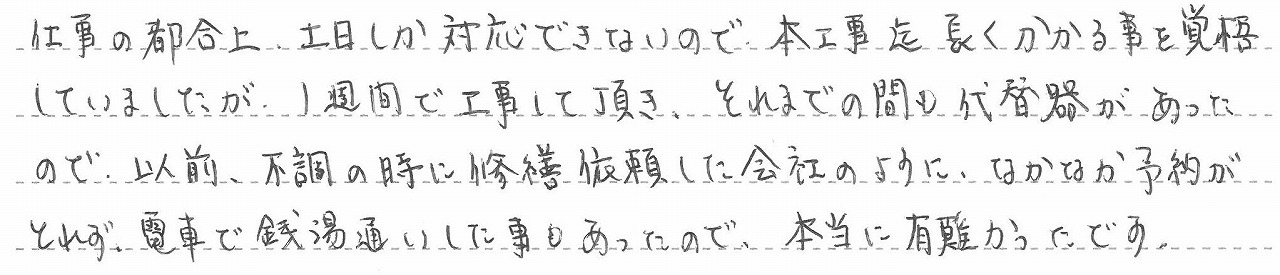 仕事の都合上、土日しか対応できないので、本工事迄長くかかる事を覚悟
していましたが、1週間で工事して頂き、それまでの間も代替器があった
ので、以前、不調の時に修繕依頼した会社のように、なかなか予約が
とれず、電車で銭湯通いした事もあったので、本当に有難かったです。